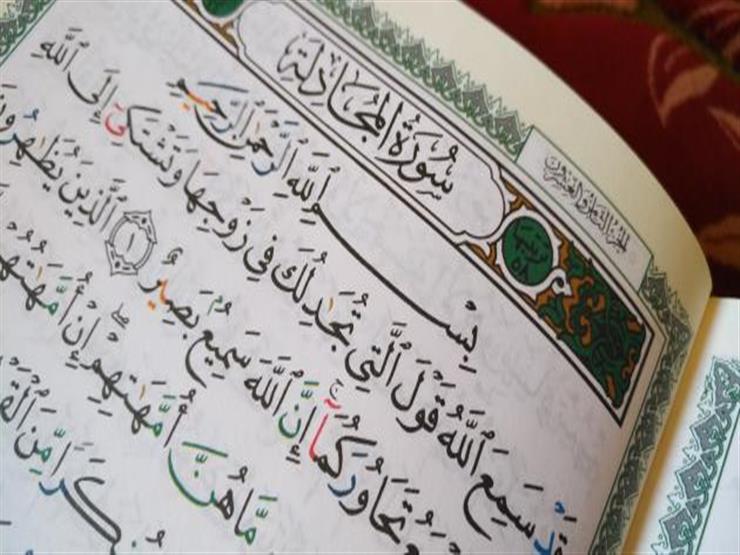 الجزء الثامن والعشرون
سُورَةُ المُجَادِلَةِ
ترتيبها ٥٨
بِسْمِ ٱللَّهِ ٱلرَّحْمَٰنِ ٱلرَّحِيمِ
قَدْ سَمِعَ ٱللَّهُ قَوْلَ ٱلَّتِى تُجَٰدِلُكَ فِى زَوْجِهَا وَتَشْتَكِىٓ إِلَى ٱللَّهِ
تَحَاوُرَكُمَآ ۚ إِنَّ ٱللَّهَ سَمِيعٌۢ بَصِيرٌ ١ ٱلَّذِينَ يُظَٰهِرُونَ
مَّا هُنَّ أُمَّهَٰتِهِمْ ۖ إِنْ أُمَّهَٰتُهُمْ
مُنكَرًا مِّنَ